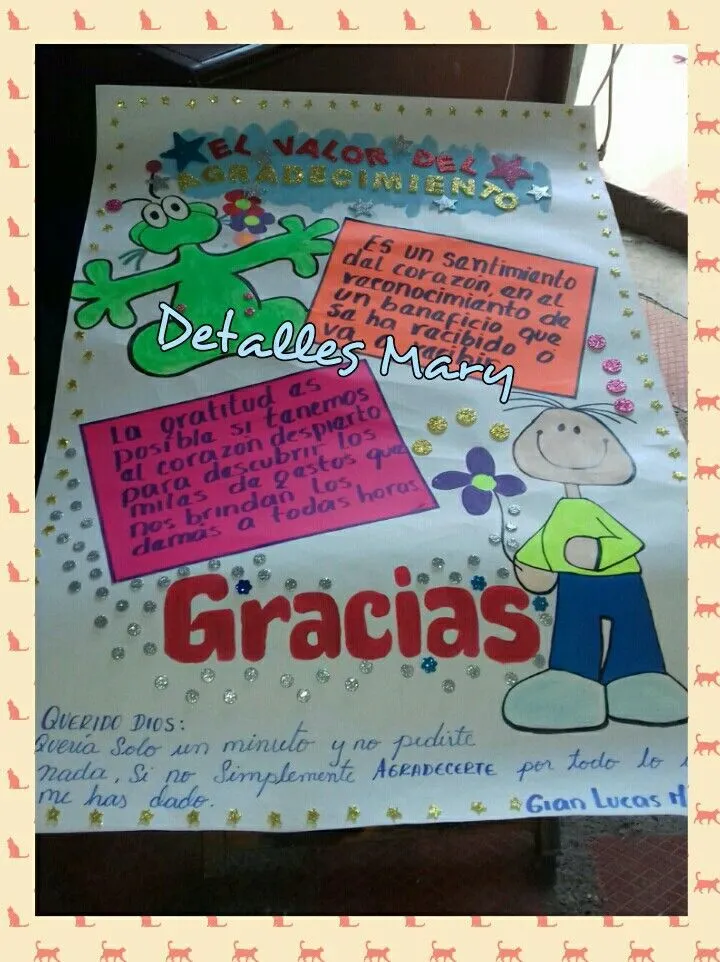 EL VALOR DEL
AGRADECIMIENTO
Es un santimiento
dal corazon, en al
raconocimiento de
un banaficio que
sa ha racibido o
va a racibir
Detalles Mary
La gratitud as
posibla si tanamos
al corazon daspiarto
para dascubrir los
milas da gastos que
nos brindan los
damás a todas horas
Gracias
QUERIDO DIOS:
Quería Solo un minuto y no pedirte
nada, Si no Simplemente AGRADECERTE por todo lo
me has dado.
Gian Lucas M